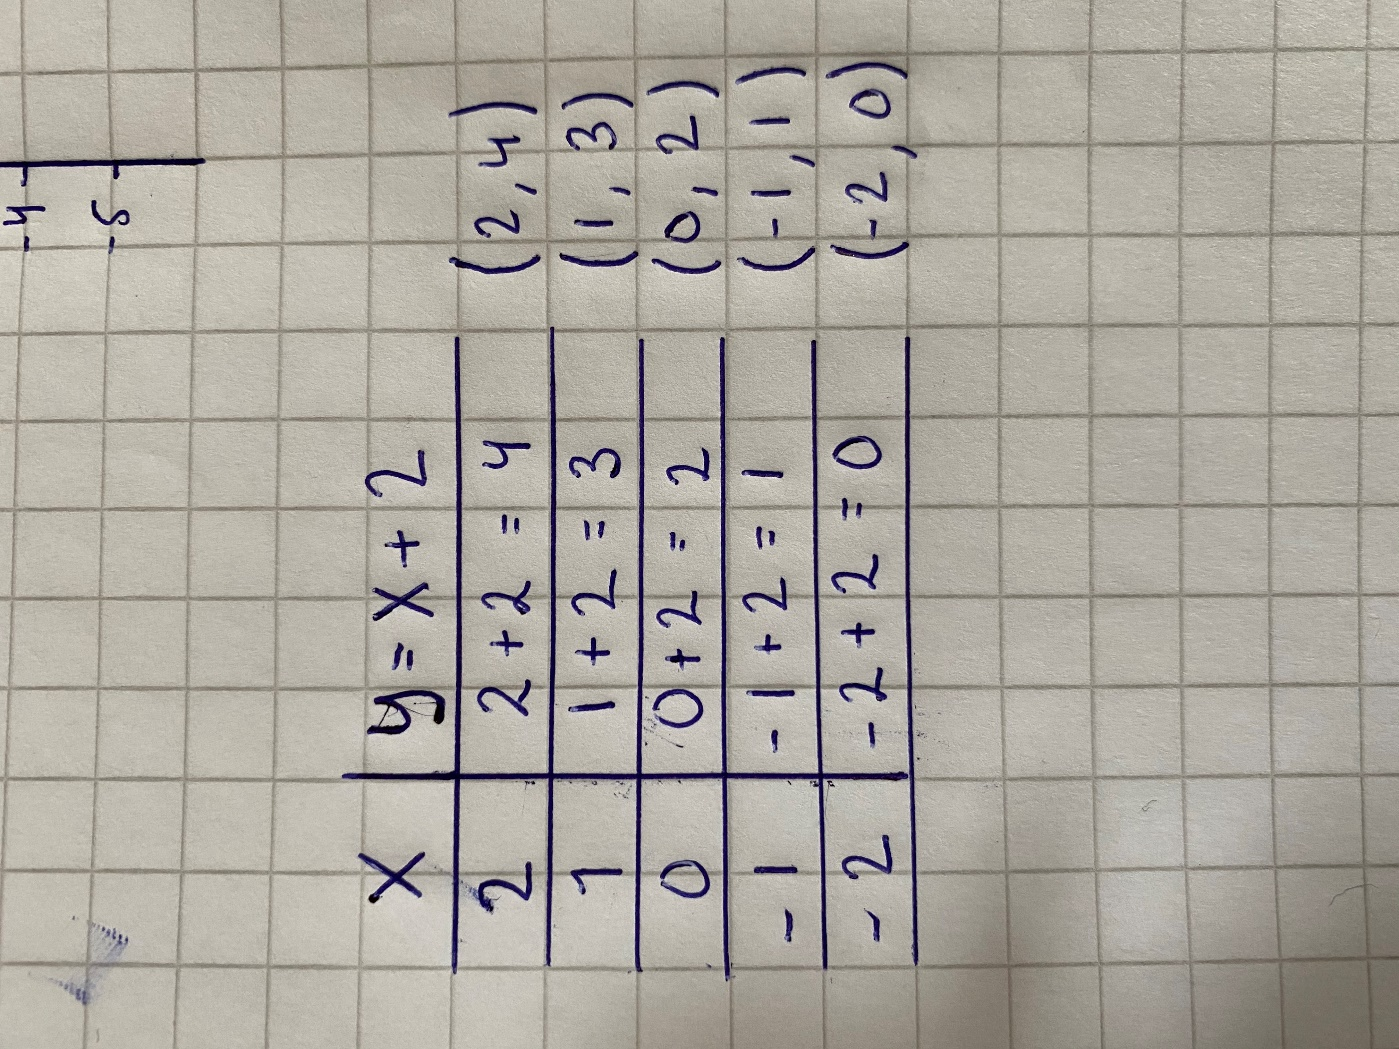 -4
-5
X y = X + 2
2 2 + 2 = 4 (2, 4)
1 1 + 2 = 3 (1, 3)
0 0 + 2 = 2 (0, 2)
-1 -1 + 2 = 1 (-1, 1)
-2 -2 + 2 = 0 (-2, 0)